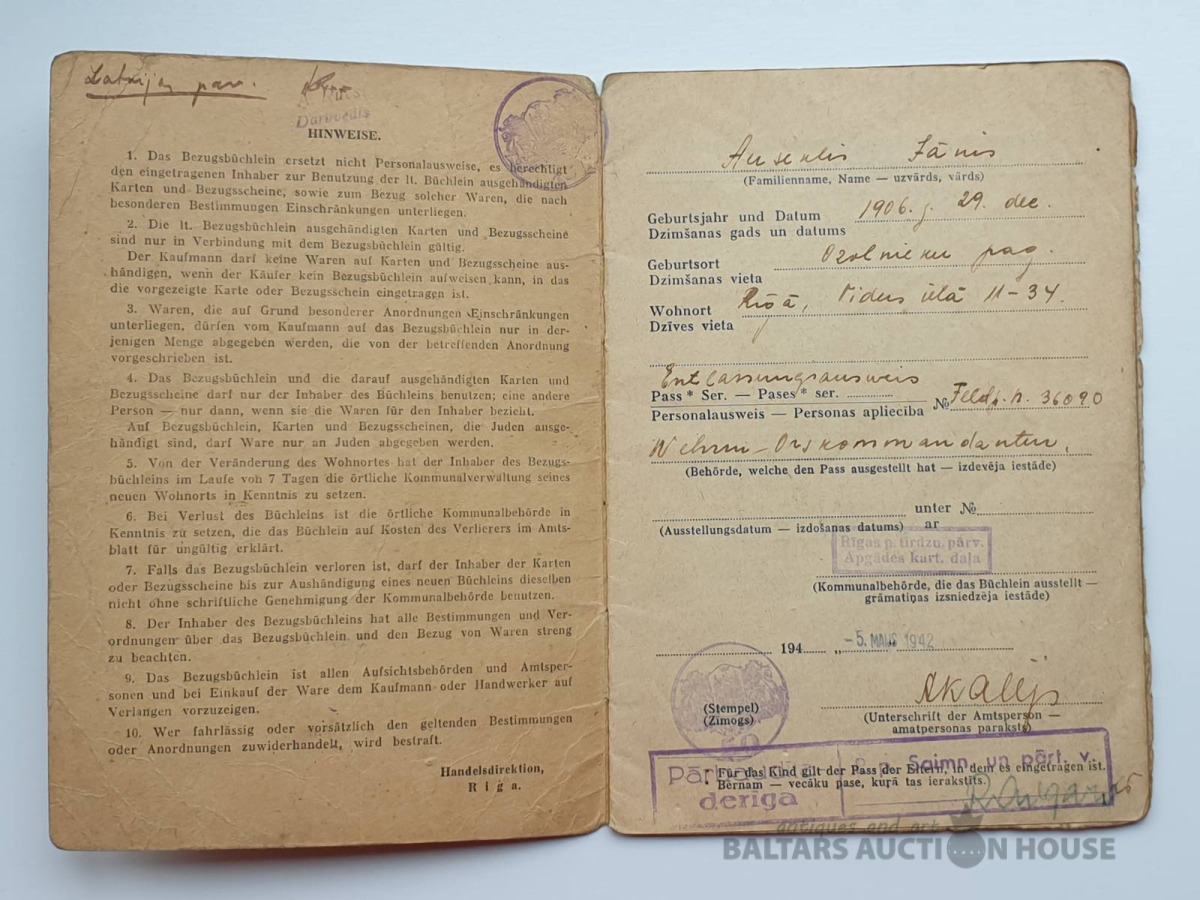 Latvijas pav.
Darbvedis
HINWEISE.
1. Das Bezugsbüchlein ersetzt nicht Personalausweise, es berechtigt
den eingetragenen Inhaber zur Benutzung der lt. Büchlein ausgehändigten
Karten und Bezugsscheine, sowie zum Bezug solcher Waren, die nach
besonderen Bestimmungen Einschränkungen unterliegen.
2. Die lt. Bezugsbüchlein ausgehändigten Karten und Bezugsscheine
sind nur in Verbindung mit dem Bezugsbüchlein gültig.
Der Kaufmann darf keine Waren auf Karten und Bezugsscheine aus-
händigen, wenn der Käufer kein Bezugsbüchlein aufweisen kann, in das
die vorgezeigte Karte oder Bezugsschein eingetragen ist.
3. Waren, die auf Grund besonderer Anordnungen Einschränkungen
unterliegen, dürfen vom Kaufmann auf das Bezugsbüchlein nur in der-
jenigen Menge abgegeben werden, die von der betreffenden Anordnung
vorgeschrieben ist.
4. Das Bezugsbüchlein und die darauf ausgehändigten Karten und
Bezugsscheine darf nur der Inhaber des Büchleins benutzen; eine andere
Person — nur dann, wenn sie die Waren für den Inhaber bezieht.
Auf Bezugsbüchlein, Karten und Bezugsscheinen, die Juden ausge-
händigt sind, darf Ware nur an Juden abgegeben werden.
5. Von der Veränderung des Wohnortes hat der Inhaber des Bezugs-
büchleins im Laufe von 7 Tagen die örtliche Kommunalverwaltung seines
neuen Wohnorts in Kenntnis zu setzen.
6. Bei Verlust des Büchleins ist die örtliche Kommunalbehörde in
Kenntnis zu setzen, die das Büchlein auf Kosten des Verlierers im Amts-
blatt für ungültig erklärt.
7. Falls das Bezugsbüchlein verloren ist, darf der Inhaber der Karten
oder Bezugsscheine bis zur Aushändigung eines neuen Büchleins dieselben
nicht ohne schriftliche Genehmigung der Kommunalbehörde benutzen.
8. Der Inhaber des Bezugsbüchleins hat alle Bestimmungen und Ver-
ordnungen über das Bezugsbüchlein und den Bezug von Waren streng
zu beachten.
9. Das Bezugsbüchlein ist allen Aufsichtsbehörden und Amtsper-
sonen und bei Einkauf der Ware dem Kaufmann oder Handwerker auf
Verlangen vorzuzeigen.
10. Wer fahrlässig oder vorsätzlich den geltenden Bestimmungen
oder Anordnungen zuwiderhandelt, wird bestraft.
Handelsdirektion,
Riga.
Auseklis Jānis
(Familienname, Name — uzvārds, vārds)
Geburtsjahr und Datum 1906. g. 29. dec.
Dzimšanas gads un datums
Geburtsort Ozolnieku pag.
Dzimšanas vieta
Wohnort Rīgā, Vidus ielā 11-34.
Dzīves vieta
Entlassungsausweis
Pass* Ser. — Pases* ser.
Personalausweis — Personas apliecība № Feldp. n. 36090
Ortskommandantur.
(Behörde, welche den Pass ausgestellt hat — izdevēja iestāde)
unter №
(Ausstellungsdatum — izdošanas datums) ar
Rīgas p. tirdzn. pārv.
Apgādes kart. daļa
(Kommunalbehörde, die das Büchlein ausstellt —
grāmatiņas izsniedzēja iestāde)
194 „ -5. MAIJS 1942
(Stempel)
(Zīmogs)
50
(Unterschrift der Amtsperson —
amatpersonas paraksts)
R. p. Saimn. un pārt. v.
derīga
* Für das Kind gilt der Pass der Eltern, in dem es eingetragen ist.
Bērnam — vecāku pase, kurā tas ierakstīts.
antiques and art
BALTARS AUCTION HOUSE